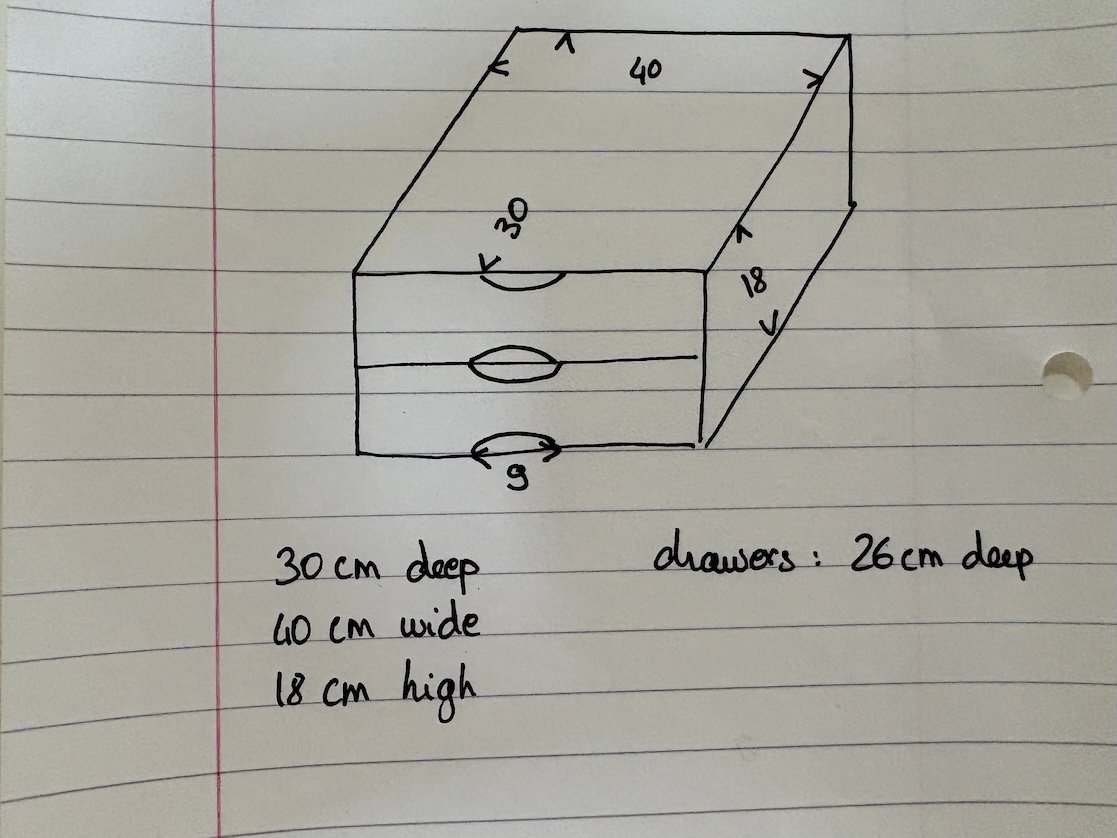 40
30
18
9
30 cm deep
40 cm wide
18 cm high
drawers : 26 cm deep